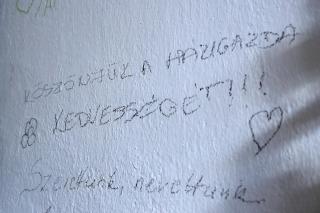 KÖSZÖNJÜK A HÁZIGAZDA
KEDVESSÉGÉT!!!
Szerettünk, nevettünk